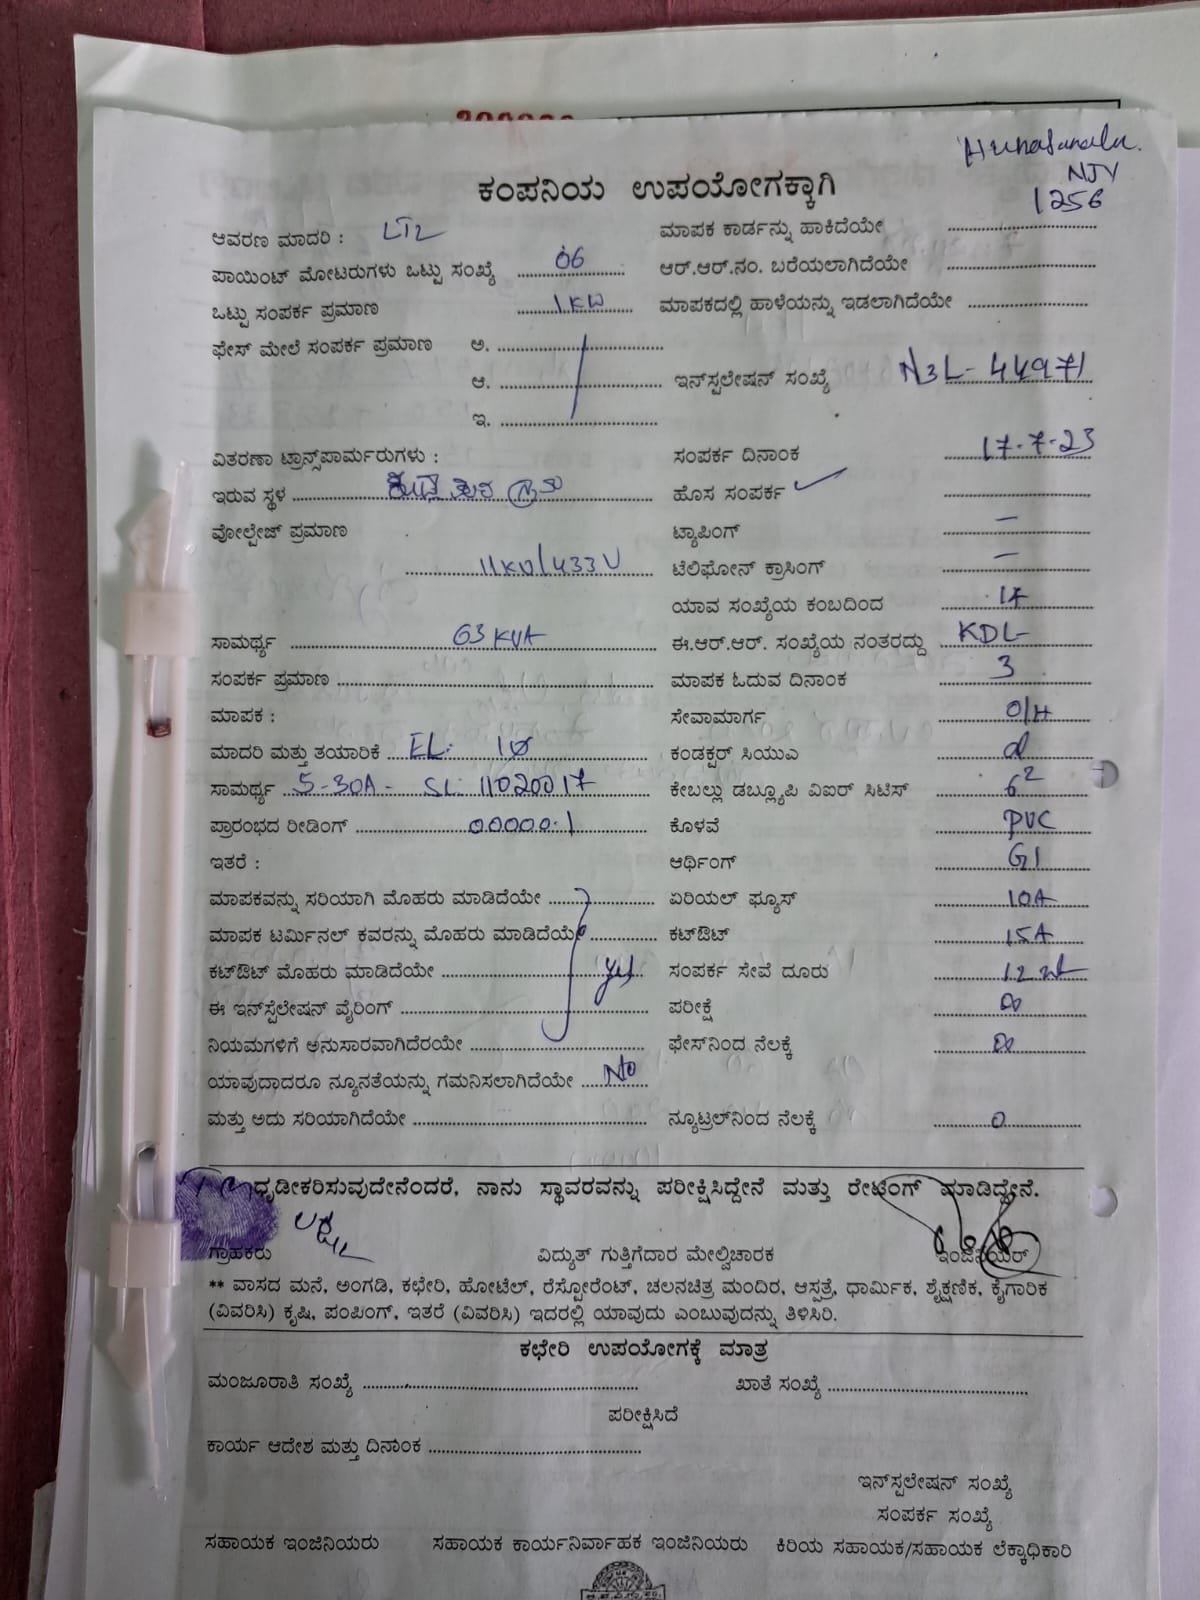 NJY
1256
ಕಂಪನಿಯ ಉಪಯೋಗಕ್ಕಾಗಿ
ಆವರಣ ಮಾದರಿ : LT2 ಮಾಪಕ ಕಾರ್ಡನ್ನು ಹಾಕಿದೆಯೇ
ಪಾಯಿಂಟ್ ಮೋಟರುಗಳು ಒಟ್ಟು ಸಂಖ್ಯೆ 06 ಆರ್.ಆರ್.ನಂ. ಬರೆಯಲಾಗಿದೆಯೇ
ಒಟ್ಟು ಸಂಪರ್ಕ ಪ್ರಮಾಣ 1KW ಮಾಪಕದಲ್ಲಿ ಹಾಳೆಯನ್ನು ಇಡಲಾಗಿದೆಯೇ
ಫೇಸ್ ಮೇಲೆ ಸಂಪರ್ಕ ಪ್ರಮಾಣ ಅ.
ಆ. ಇನ್‌ಸ್ಪಲೇಷನ್ ಸಂಖ್ಯೆ N3L-44971
ಇ.
ವಿತರಣಾ ಟ್ರಾನ್ಸ್‌ಪಾರ್ಮರುಗಳು : ಸಂಪರ್ಕ ದಿನಾಂಕ 17-7-23
ಇರುವ ಸ್ಥಳ ಹೊಸ ಸಂಪರ್ಕ ✓
ವೋಲ್ಟೇಜ್ ಪ್ರಮಾಣ ಟ್ಯಾಪಿಂಗ್ –
11KV/433V ಟೆಲಿಫೋನ್ ಕ್ರಾಸಿಂಗ್ –
ಯಾವ ಸಂಖ್ಯೆಯ ಕಂಬದಿಂದ 17
ಸಾಮರ್ಥ್ಯ 63KVA ಈ.ಆರ್.ಆರ್. ಸಂಖ್ಯೆಯ ನಂತರದ್ದು KDL-
ಸಂಪರ್ಕ ಪ್ರಮಾಣ ಮಾಪಕ ಓದುವ ದಿನಾಂಕ 3
ಮಾಪಕ : ಸೇವಾಮಾರ್ಗ O/H
ಮಾದರಿ ಮತ್ತು ತಯಾರಿಕೆ EL- 1Ø ಕಂಡಕ್ಟರ್ ಸಿಯುಎ
ಸಾಮರ್ಥ್ಯ 5-30A- SL: 11020017 ಕೇಬಲ್ಲು ಡಬ್ಲ್ಯೂಪಿ ವಿಐರ್ ಸಿಟಿಸ್ 6²
ಪ್ರಾರಂಭದ ರೀಡಿಂಗ್ 00000.1 ಕೊಳವೆ PVC
ಇತರೆ : ಆರ್ಥಿಂಗ್ GI
ಮಾಪಕವನ್ನು ಸರಿಯಾಗಿ ಮೊಹರು ಮಾಡಿದೆಯೇ ಏರಿಯಲ್ ಫ್ಯೂಸ್ 10A
ಮಾಪಕ ಟರ್ಮಿನಲ್ ಕವರನ್ನು ಮೊಹರು ಮಾಡಿದೆಯೇ ಕಟ್‌ಔಟ್ 15A
ಕಟ್‌ಔಟ್ ಮೊಹರು ಮಾಡಿದೆಯೇ yes ಸಂಪರ್ಕ ಸೇವೆ ದೂರು
ಈ ಇನ್‌ಸ್ಪೆಲೇಷನ್ ವೈರಿಂಗ್ ಪರೀಕ್ಷೆ ∞
ನಿಯಮಗಳಿಗೆ ಅನುಸಾರವಾಗಿದೆರಯೇ ಫೇಸ್‌ನಿಂದ ನೆಲಕ್ಕೆ ∞
ಯಾವುದಾದರೂ ನ್ಯೂನತೆಯನ್ನು ಗಮನಿಸಲಾಗಿದೆಯೇ No
ಮತ್ತು ಅದು ಸರಿಯಾಗಿದೆಯೇ ನ್ಯೂಟ್ರಲ್‌ನಿಂದ ನೆಲಕ್ಕೆ 0
ಧೃಡೀಕರಿಸುವುದೇನೆಂದರೆ, ನಾನು ಸ್ಥಾವರವನ್ನು ಪರೀಕ್ಷಿಸಿದ್ದೇನೆ ಮತ್ತು ರೇಟಿಂಗ್ ಮಾಡಿದ್ದೇನೆ.
ಗ್ರಾಹಕರು ವಿದ್ಯುತ್ ಗುತ್ತಿಗೆದಾರ ಮೇಲ್ವಿಚಾರಕ ಇಂಜಿನಿಯರ್
** ವಾಸದ ಮನೆ, ಅಂಗಡಿ, ಕಛೇರಿ, ಹೋಟೆಲ್, ರೆಸ್ಟೋರೆಂಟ್, ಚಲನಚಿತ್ರ ಮಂದಿರ, ಆಸ್ಪತ್ರೆ, ಧಾರ್ಮಿಕ, ಶೈಕ್ಷಣಿಕ, ಕೈಗಾರಿಕ
(ವಿವರಿಸಿ) ಕೃಷಿ, ಪಂಪಿಂಗ್, ಇತರೆ (ವಿವರಿಸಿ) ಇದರಲ್ಲಿ ಯಾವುದು ಎಂಬುವುದನ್ನು ತಿಳಿಸಿರಿ.
ಕಛೇರಿ ಉಪಯೋಗಕ್ಕೆ ಮಾತ್ರ
ಮಂಜೂರಾತಿ ಸಂಖ್ಯೆ ಖಾತೆ ಸಂಖ್ಯೆ
ಪರೀಕ್ಷಿಸಿದೆ
ಕಾರ್ಯ ಆದೇಶ ಮತ್ತು ದಿನಾಂಕ
ಇನ್‌ಸ್ಪಲೇಷನ್ ಸಂಖ್ಯೆ
ಸಂಪರ್ಕ ಸಂಖ್ಯೆ
ಸಹಾಯಕ ಇಂಜಿನಿಯರು ಸಹಾಯಕ ಕಾರ್ಯನಿರ್ವಾಹಕ ಇಂಜಿನಿಯರು ಕಿರಿಯ ಸಹಾಯಕ/ಸಹಾಯಕ ಲೆಕ್ಕಾಧಿಕಾರಿ